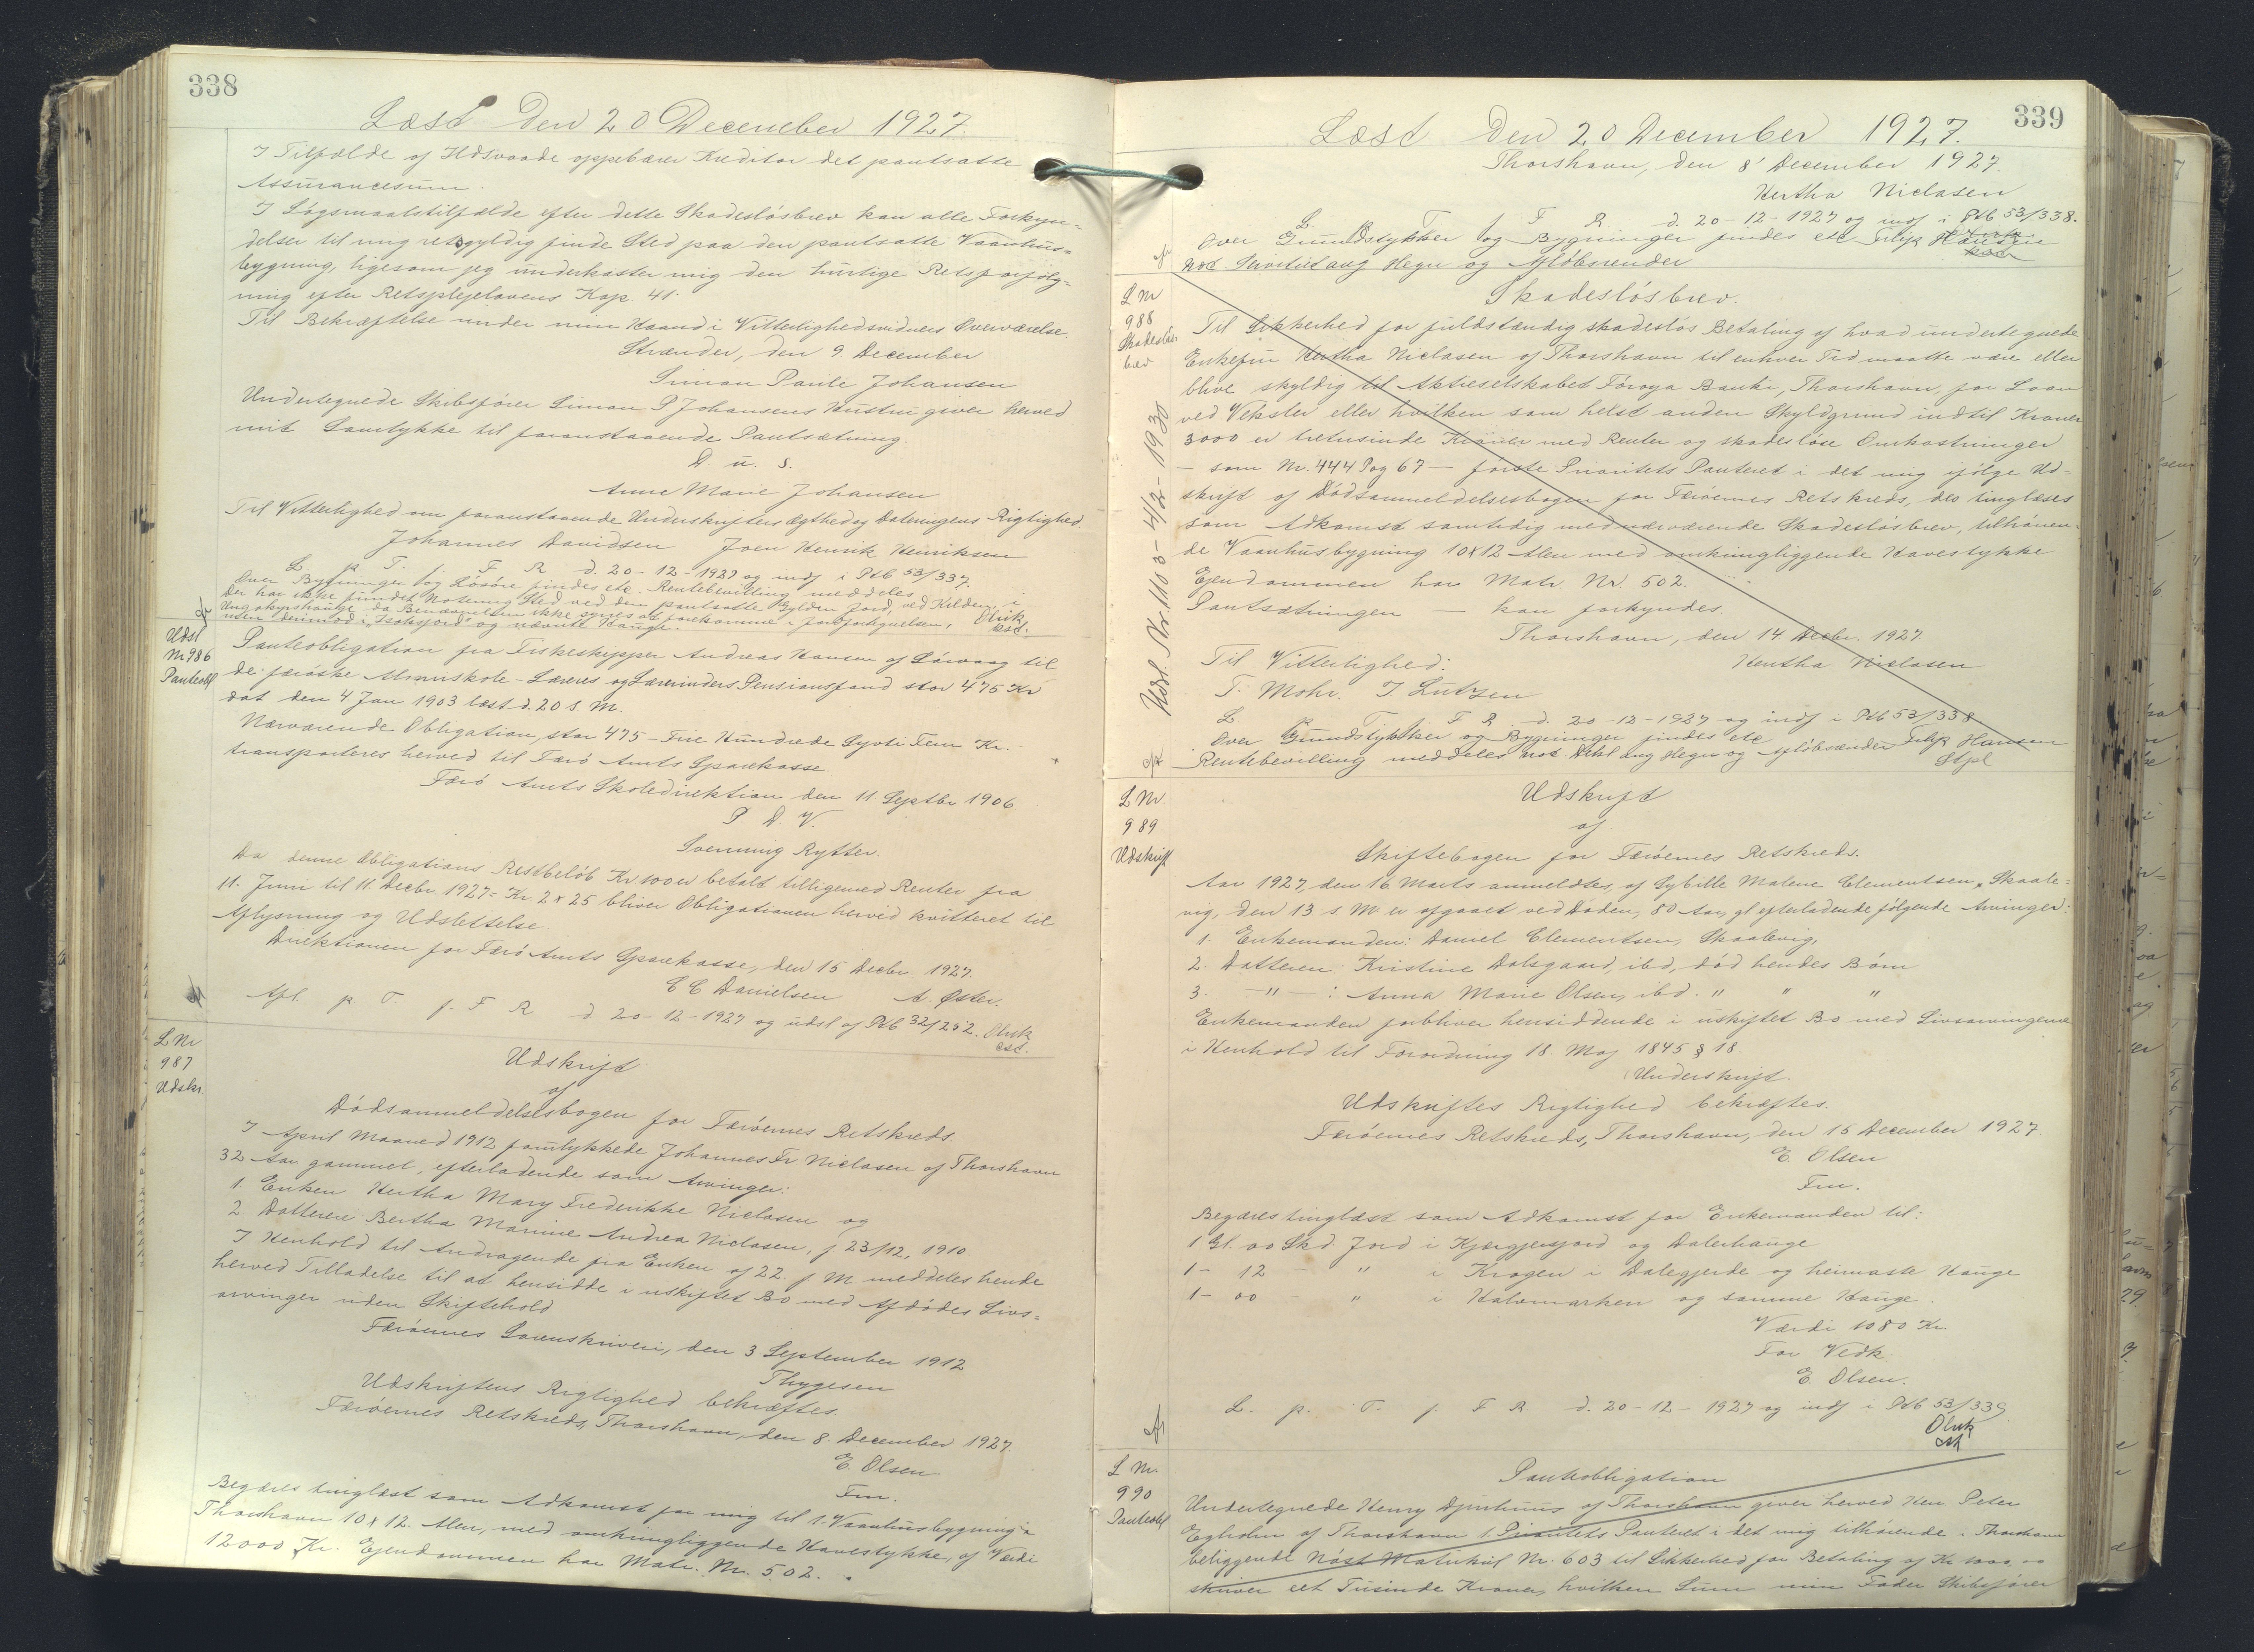 338
Læst Den 20 December 1927.
I Tilfælde af Ildsvaade oppebærer Kreditor det pantsatte
Assurancesum.
I Søgsmaalstilfælde efter dette Skadesløsbrev kan alle Forkyn-
delser til mig retsgyldig finde Sted paa den pantsatte Vaanhus-
bygning, ligesom jeg underkaster mig den hurtige Retsforfølg-
ning efter Retsplejelovens Kap. 41.
Til Bekræftelse under min Haand i Vitterlighedsvidners Overværelse.
Strænder, den 9 December
Simon Paule Johansen
Undertegnede Skibsfører Simon P Johansens Hustru giver herved
mit Samtykke til foranstaaende Pantsætning.
D. u. S.
Anne Marie Johansen
Til Vitterlighed om foranstaaende Underskrifters Ægthed og Dateringens Rigtighed.
Johannes Davidsen Joen Henrik Henriksen
L. p. T. f. F R d. 20-12-1927 og indf i Ptb 53/337.
Over Bygninger og Løsøre findes etc. Rentebevilling meddeles
Der har ikke fundet Notering Sted ved den pantsatte Gylden Jord, ved Kilden, i
da Benævnelsen ikke synes at forekomme i
men derimod i og nævnte Hauge. Oluk
est.
Udsl
Nr 986
Panteobl
Panteobligation fra Fiskeskipper Andreas Hansen af Sørvaag til
de færøske Almuskole-Læreres og Lærerinders Pensionsfond stor 475 Kr
dat den 4 Jan 1903 læst d. 20 s M.
Nærværende Obligation, stor 475 - Fire Hundrede Syvti Fem Kr. -
transporteres herved til Færø Amts Sparekasse.
Færø Amts Skoledirektion den 11 Septbr 1906
P. D. V.
Svenning Rytter.
Da denne Obligations Restbeløb Kr 100 er betalt tilligemed Renter fra
11. Juni til 11 Decbr. 1927 = Kr 2 x 25 bliver Obligationen herved kvitteret til
Aflysning og Udslettelse.
Direktionen for Færø Amts Sparekasse, den 15 Decbr 1927.
C C Danielsen A. Øster.
Afl. p. T. f. F R d 20-12-1927 og udsl af Ptb 32/252. Oluk
est.
L Nr
987
Udskr.
Udskrift
af
Dødsanmeldelsesbogen for Færøernes Retskreds.
I April Maaned 1912 forulykkede Johannes Fr Niclasen af Thorshavn
32 Aar gammel, efterladende som Arvinger:
1. Enken Hertha Mary Frederikke Niclasen og
2 Datteren Bertha Marine Andrea Niclasen, f 23/12, 1910.
I Henhold til Andragende fra Enken af 22. f M meddeles hende
herved Tilladelse til at hensidde i uskiftet Bo med Afdødes Livs-
arvinger uden Skiftehold
Færøernes Sorenskriveri, den 3 September 1912
Thygesen
Udskriftens Rigtighed bekræftes.
Færøernes Retskreds, Thorshavn, den 8. December 1927.
E. Olsen.
Fm.
Begæres tinglæst som Adkomst for mig til 1. Vaanhusbygning i
Thorshavn 10 x 12. Alen, med omkringliggende Havestykke, af Værdi
12000 Kr. Ejendommen har Matr. Nr. 502.
339
Læst Den 20 December 1927.
Thorshavn, den 8' December 1927.
Hertha Niclasen
L. p. T. f. F R. d. 20-12-1927 og indf i Ptb 53/338.
Over Grundstykker og Bygninger findes etc Filip Hansen
not Servitut ang Hegn og Afløbsrender
L Nr
988
Skadesløs-
brev
Udsl. Nr. 1103 - 4/2 - 1930
Skadesløsbrev.
Til Sikkerhed for fuldstændig skadesløs Betaling af hvad undertegnede
Enkefru Hertha Niclasen af Thorshavn til enhver Tid maatte være eller
blive skyldig til Aktieselskabet Føroya Banki, Thorshavn, for Laan
ved Veksler eller hvilken som helst anden Skyldgrund indtil Kroner
3000 er tretusinde Kroner med Renter og skadesløse Omkostninger
- som Nr. 444 Pag 67 - første Prioritets Panteret i det mig ifølge Ud-
skrift af Dødsanmeldelsesbogen for Færøernes Retskreds, der tinglæses
som Adkomst samtidig med nærværende Skadesløsbrev, tilhøren-
de Vaanhusbygning 10 x 12 Alen med omkringliggende Havestykke
Ejendommen har Matr. Nr 502.
Pantsætningen - kan forkyndes.
Thorshavn, den 14 Decbr. 1927.
Til Vitterlighed: Hertha Niclasen
T. Mohr. J Lützen
L p. F R. d. 20-12-1927 og indf i Ptb 53/338
Over Grundstykker og Bygninger findes etc Filip Hansen
Rentebevilling meddeles not. Dekl ang Hegn og Afløbsrender Stpl
L Nr.
989
Udskrift
Udskrift
af
Skiftebogen for Færøernes Retskreds.
Aar 1927, den 16 Marts anmeldtes, af Sybille Malene Clementsen, Skaale-
vig, den 13 s M er afgaaet ved Døden, 80 Aar, gl efterladende følgende Arvinger:
1. Enkemanden: Daniel Clementsen, Skaalevig,
2. Datteren: Kristine Dalsgaard, ibd, død hendes Børn
3. - " - : Anna Marie Olsen, ibd. " " "
Enkemanden forbliver hensiddende i uskiftet Bo med Livsarvingerne
i Henhold til Forordning 18. Maj 1845 § 18.
(Underskrift.
Udskriftes Rigtighed bekræftes.
Færøernes Retskreds, Thorshavn, den 16 December 1927.
E. Olsen
Fm.
Begæres tinglæst som Adkomst for Enkemanden til:
1 Gl. 00 Skd. Jord i Kjærgjersjord og Dalerhauge
1 - 12 - " i Krogen i Dalegjerde og heimaste Hauge
1 - 00 " i Halvmarken og samme Hauge.
Værdi 1080 Kr.
For Vedk
E. Olsen.
L. p. T. f. F R. d. 20-12-1927 og indf i Ptb 53/339
Oluk
est
L Nr.
990
Panteobl
Panteobligation
Undertegnede Henry Djurhuus af Thorshavn giver herved Herr Peter
Egholm af Thorshavn 1 Prioritets Panteret i det mig tilhørende i Thorshavn
beliggende Nøst Matrikul Nr. 603 til Sikkerhed for Betaling af Kr 1000,00
skriver eet Tusinde Kroner, hvilken Sum min Fader Skibsfører